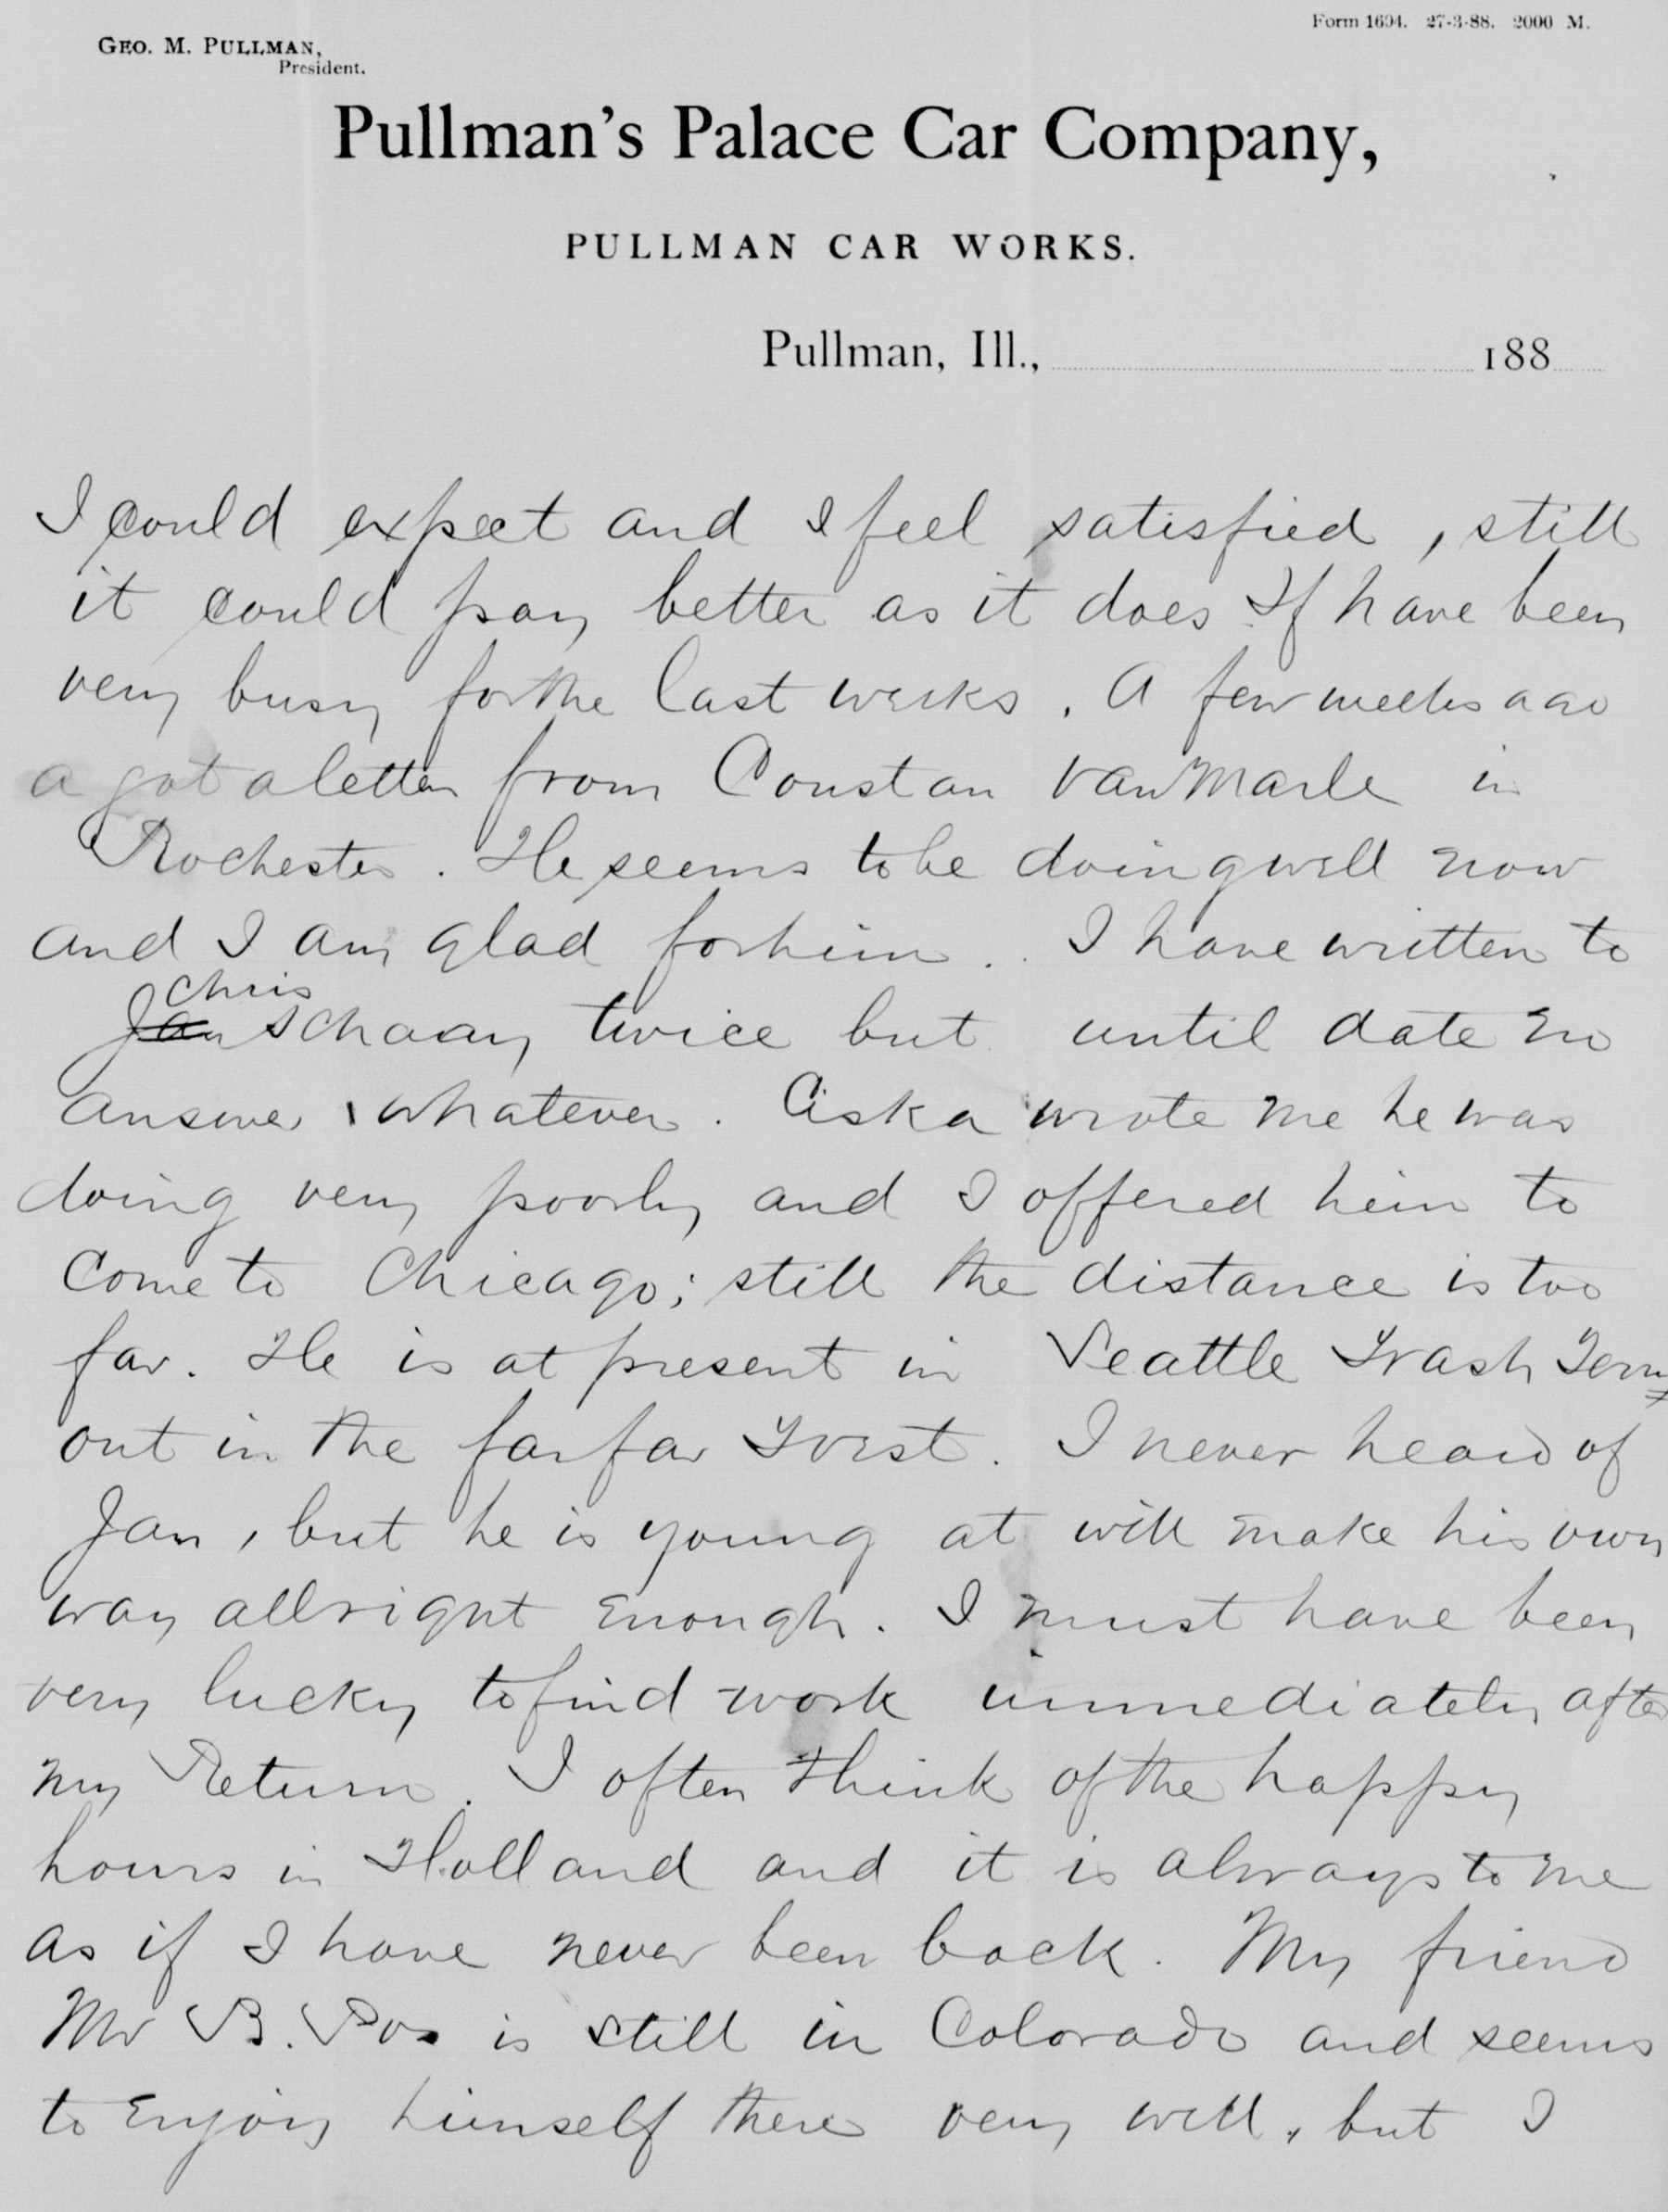 Form 1604. 27-3-88. 2000 M.
GEO. M. PULLMAN,
President.
Pullman's Palace Car Company,
PULLMAN CAR WORKS.
Pullman, Ill., 188
I could expect and I feel satisfied, still
it could pay better as it does. If have been
very busy for the last weeks. A few weeks ago
a got a letter from Constan van Marle in
Rochester. He seems to be doing well now
and I am glad for him. I have written to
Chris
Jan Schaay twice but until date no
answer whatever. Ciska wrote me he was
doing very poorly and I offered him to
come to Chicago; still the distance is too
far. He is at present in Seattle Wash Terry
out in the far far West. I never heard of
Jan, but he is young at will make his own
way allright enough. I must have been
very lucky to find work immediately after
my Return. I often think of the happy
hours in Holland and it is always to me
as if I have never been back. My friend
Mr B. Pos is still in Colorado and seems
to enjoy himself there very well, but I